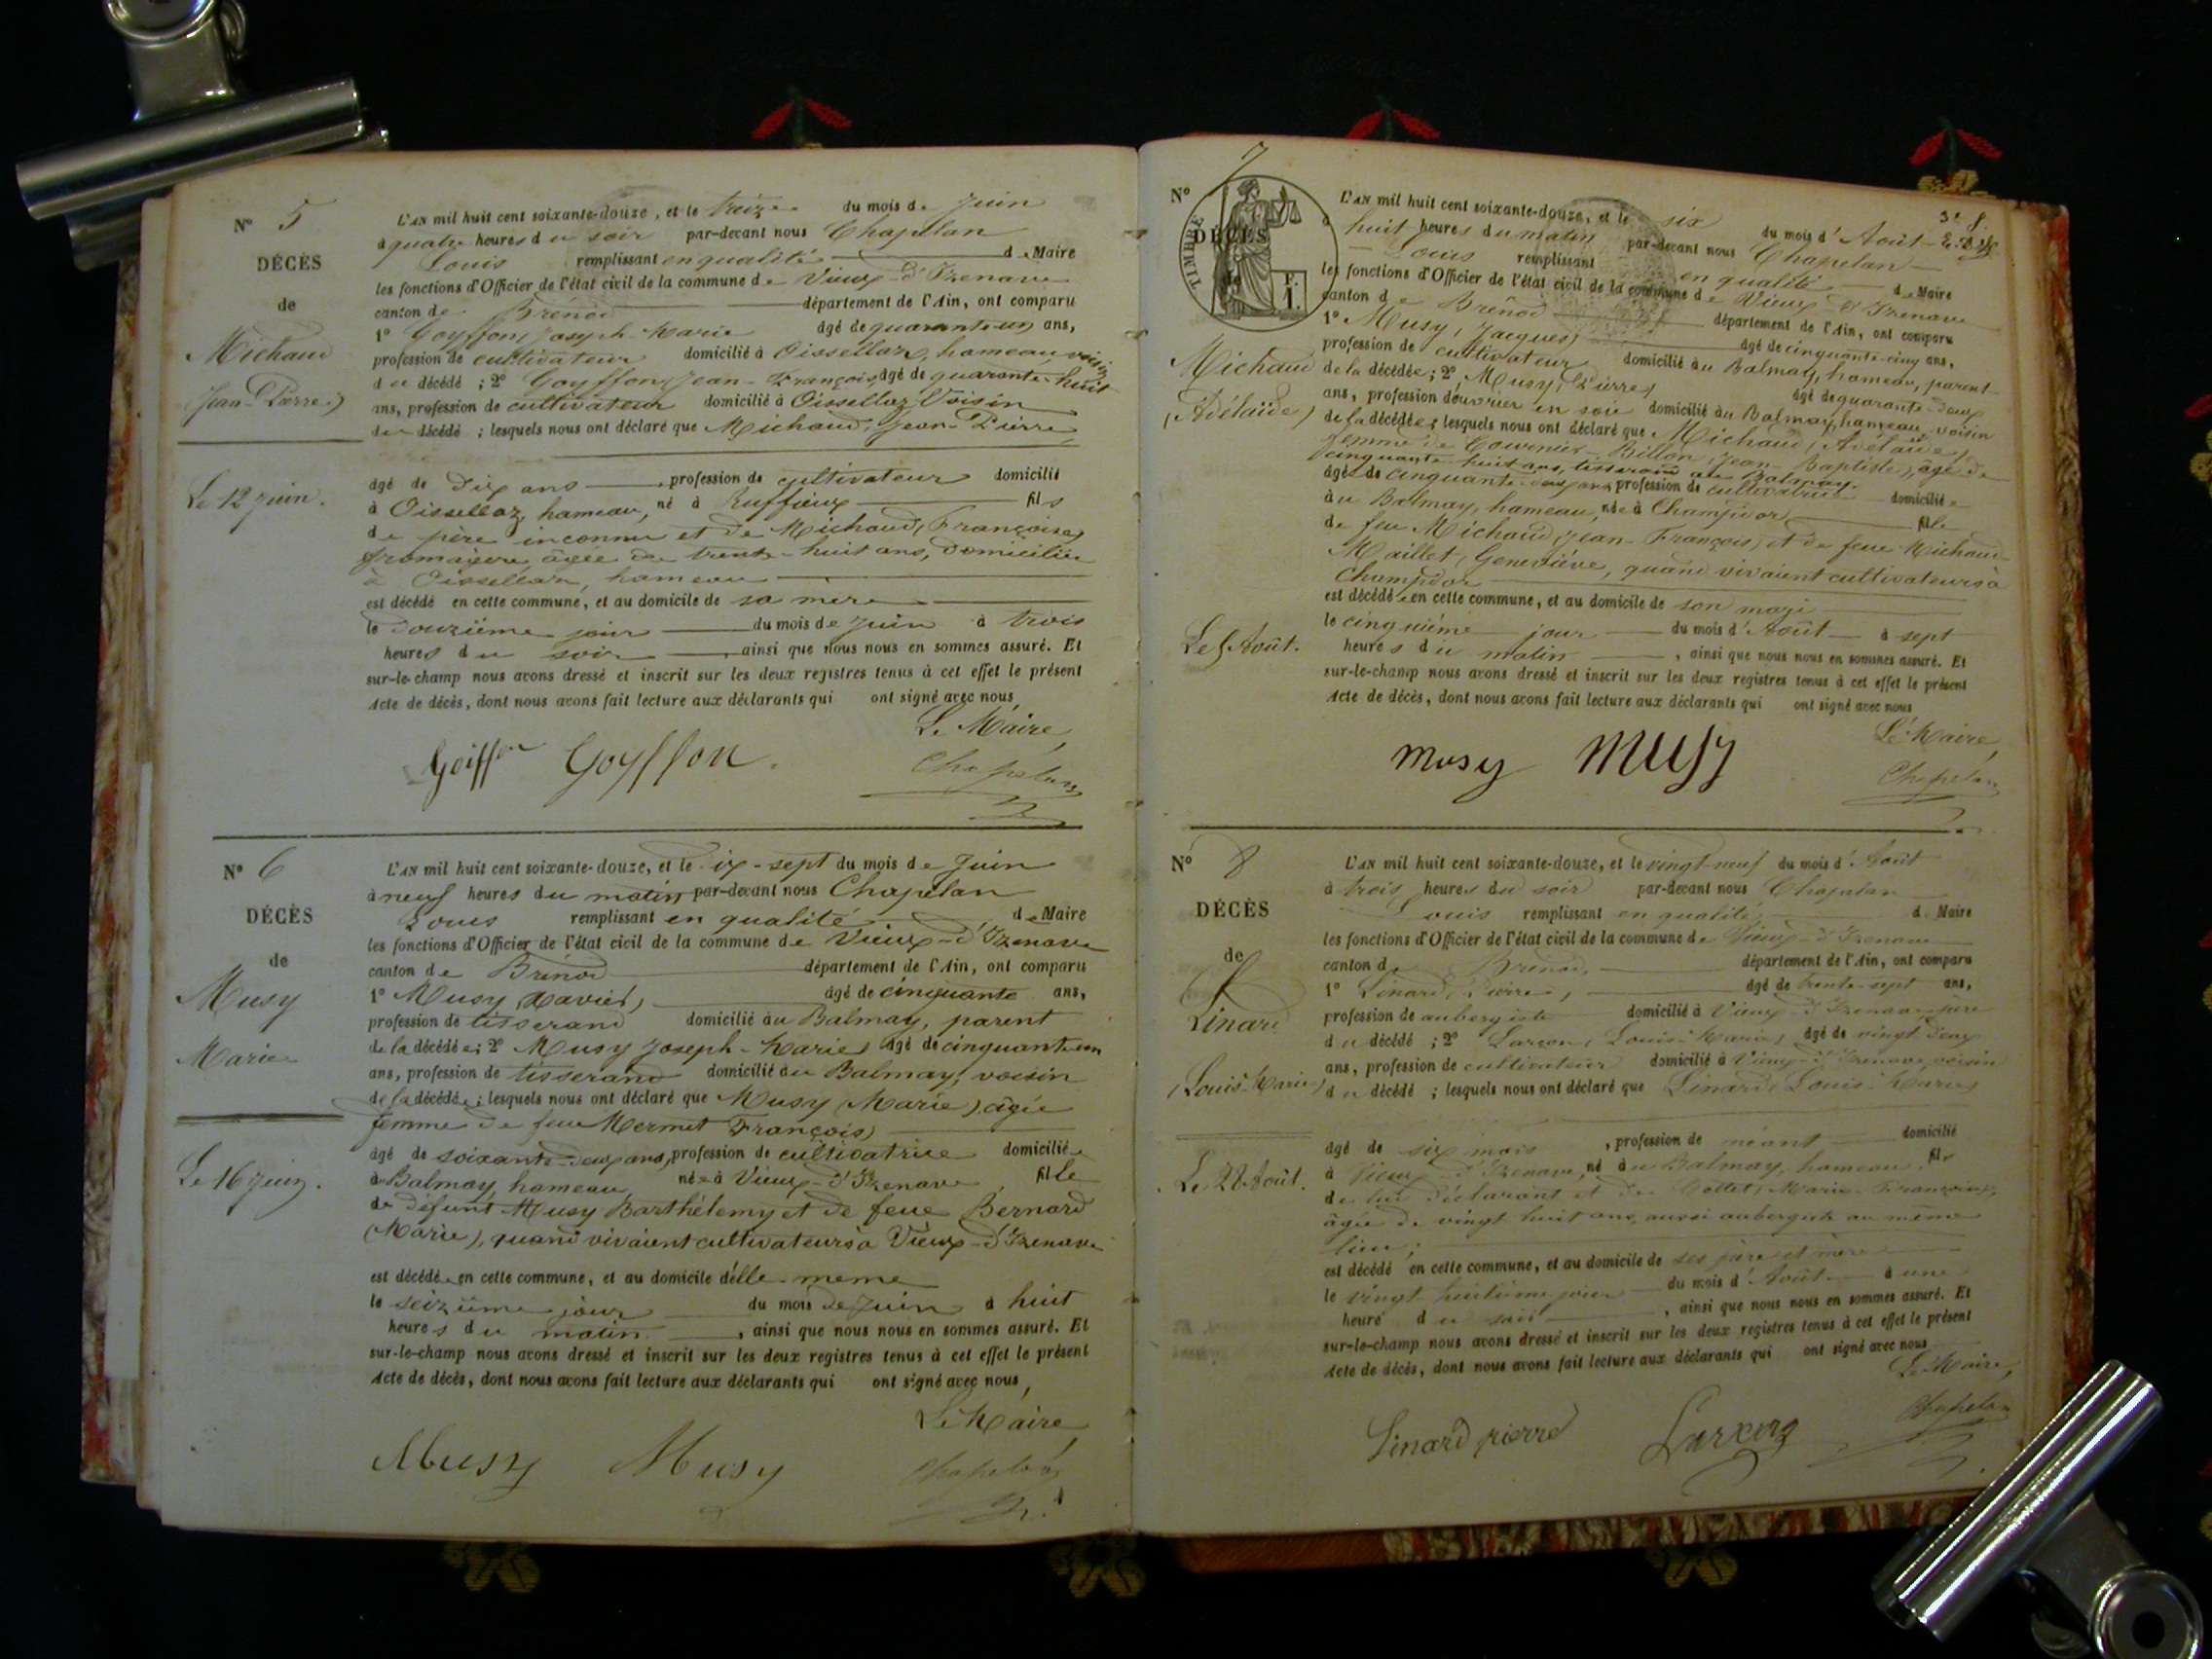 N° 5
DÉCÈS
de
Michaud
(Jean-Pierre)
Le 12 juin.
L'AN mil huit cent soixante-douze, et le treize du mois de Juin
à quatre heures du soir par-devant nous Chapelan
Louis remplissant en qualité de Maire
les fonctions d'Officier de l'état civil de la commune de Vieux-d'Izenave
canton de Brénod département de l'Ain, ont comparu
1° Goyffon, Joseph-Marie âgé de quarante un ans,
profession de cultivateur domicilié à Oissellaz, hameau voisin
du décédé ; 2° Goyffon, Jean-François, âgé de quarante-huit
ans, profession de cultivateur domicilié à Oissellaz, Voisin
du décédé ; lesquels nous ont déclaré que Michaud, Jean-Pierre,
âgé de Dix ans profession de cultivateur domicilié
à Oissellaz, hameau, né à Ruffieux fils
de père inconnu et de Michaud (Françoise)
fromagère, âgée de trente-huit ans, domiciliée
à Oissellaz, hameau
est décédé en cette commune, et au domicile de sa mère
le douzième jour du mois de Juin à trois
heures du soir ainsi que nous nous en sommes assuré. Et
sur-le-champ nous avons dressé et inscrit sur les deux registres tenus à cet effet le présent
Acte de décès, dont nous avons fait lecture aux déclarants qui ont signé avec nous
Le Maire,
Goiffon Goyffon. Chapelan
N° 6
DÉCÈS
de
Musy
Marie
Le 16 Juin.
L'AN mil huit cent soixante-douze, et le dix-sept du mois de Juin
à neuf heures du matin par-devant nous Chapelan
Louis remplissant en qualité de Maire
les fonctions d'Officier de l'état civil de la commune de Vieux-d'Izenave
canton de Brénod département de l'Ain, ont comparu
1° Musy (Xavier) âgé de cinquante ans,
profession de tisserand domicilié au Balmay, parent
de la décédée ; 2° Musy Joseph-Marie) âgé de cinquante un
ans, profession de tisserand domicilié au Balmay, voisin
de la décédée ; lesquels nous ont déclaré que Musy (Marie), âgée
femme de feu Mermet François)
âgé de soixante-deux ans, profession de cultivatrice domiciliée
à Balmay, hameau née à Vieux-d'Izenave fille
de défunt Musy Barthélemy et de feue Bernard
(Marie), quand vivaient cultivateurs à Vieux-d'Izenave
est décédée en cette commune, et au domicile d'elle-même
le seizième jour du mois de Juin à huit
heures du matin , ainsi que nous nous en sommes assuré. Et
sur-le-champ nous avons dressé et inscrit sur les deux registres tenus à cet effet le présent
Acte de décès, dont nous avons fait lecture aux déclarants qui ont signé avec nous,
Le Maire,
Musy Musy Chapelan
N° 7
TIMBRE
1 F.
DÉCÈS
de
Michaud
(Adélaïde)
Le 5 Août.
L'AN mil huit cent soixante-douze, et le six du mois d'Août
à huit heures du matin par-devant nous Chapelan
Louis remplissant en qualité de Maire
les fonctions d'Officier de l'état civil de la commune de Vieux-d'Izenave
canton de Brénod département de l'Ain, ont comparu
1° Musy (Jacques) âgé de cinquante-cinq ans,
profession de cultivateur domicilié au Balmay, hameau, parent
de la décédée ; 2° Musy (Pierre) âgé de quarante-deux
ans, profession d'ouvrier en soie domicilié au Balmay, hameau, voisin
de la décédée ; lesquels nous ont déclaré que Michaud (Adélaïde)
femme de Billon, Jean-Baptiste), âgé de
cinquante-huit ans, tisserand au Balmay.
âgée de cinquante-deux ans profession de cultivatrice domiciliée
au Balmay, hameau, née à Champdor fille
de feu Michaud (Jean-François) et de feue Michaud-
Maillet, Geneviève, quand vivaient cultivateurs à
Champdor
est décédée en cette commune, et au domicile de son mari
le cinquième jour du mois d'Août à sept
heures du matin , ainsi que nous nous en sommes assuré. Et
sur-le-champ nous avons dressé et inscrit sur les deux registres tenus à cet effet le présent
Acte de décès, dont nous avons fait lecture aux déclarants qui ont signé avec nous
Le Maire,
Musy Musy Chapelan
N° 8
DÉCÈS
de
Linard
(Louis-Marie)
Le 28 Août.
L'AN mil huit cent soixante-douze, et le vingt-neuf du mois d'Août
à trois heures du soir par-devant nous Chapelan
Louis remplissant en qualité de Maire
les fonctions d'Officier de l'état civil de la commune de Vieux-d'Izenave
canton de Brénod département de l'Ain, ont comparu
1° Linard, Pierre, âgé de trente-sept ans,
profession de aubergiste domicilié à Vieux-d'Izenave père
du décédé ; 2° Louis-Marie) âgé de vingt-deux
ans, profession de cultivateur domicilié à Vieux-d'Izenave, voisin
du décédé ; lesquels nous ont déclaré que Linard (Louis-Marie)
âgé de six mois , profession de néant domicilié
à Vieux-d'Izenave, né au Balmay, hameau, fils
de lui déclarant et de Marie-Françoise,
âgée de vingt-huit ans, aussi aubergiste au même
lieu ;
est décédé en cette commune, et au domicile de ses père et mère
le vingt-huitième jour du mois d'Août à une
heure du soir , ainsi que nous nous en sommes assuré. Et
sur-le-champ nous avons dressé et inscrit sur les deux registres tenus à cet effet le présent
Acte de décès, dont nous avons fait lecture aux déclarants qui ont signé avec nous
Le Maire,
Linard pierre Chapelan